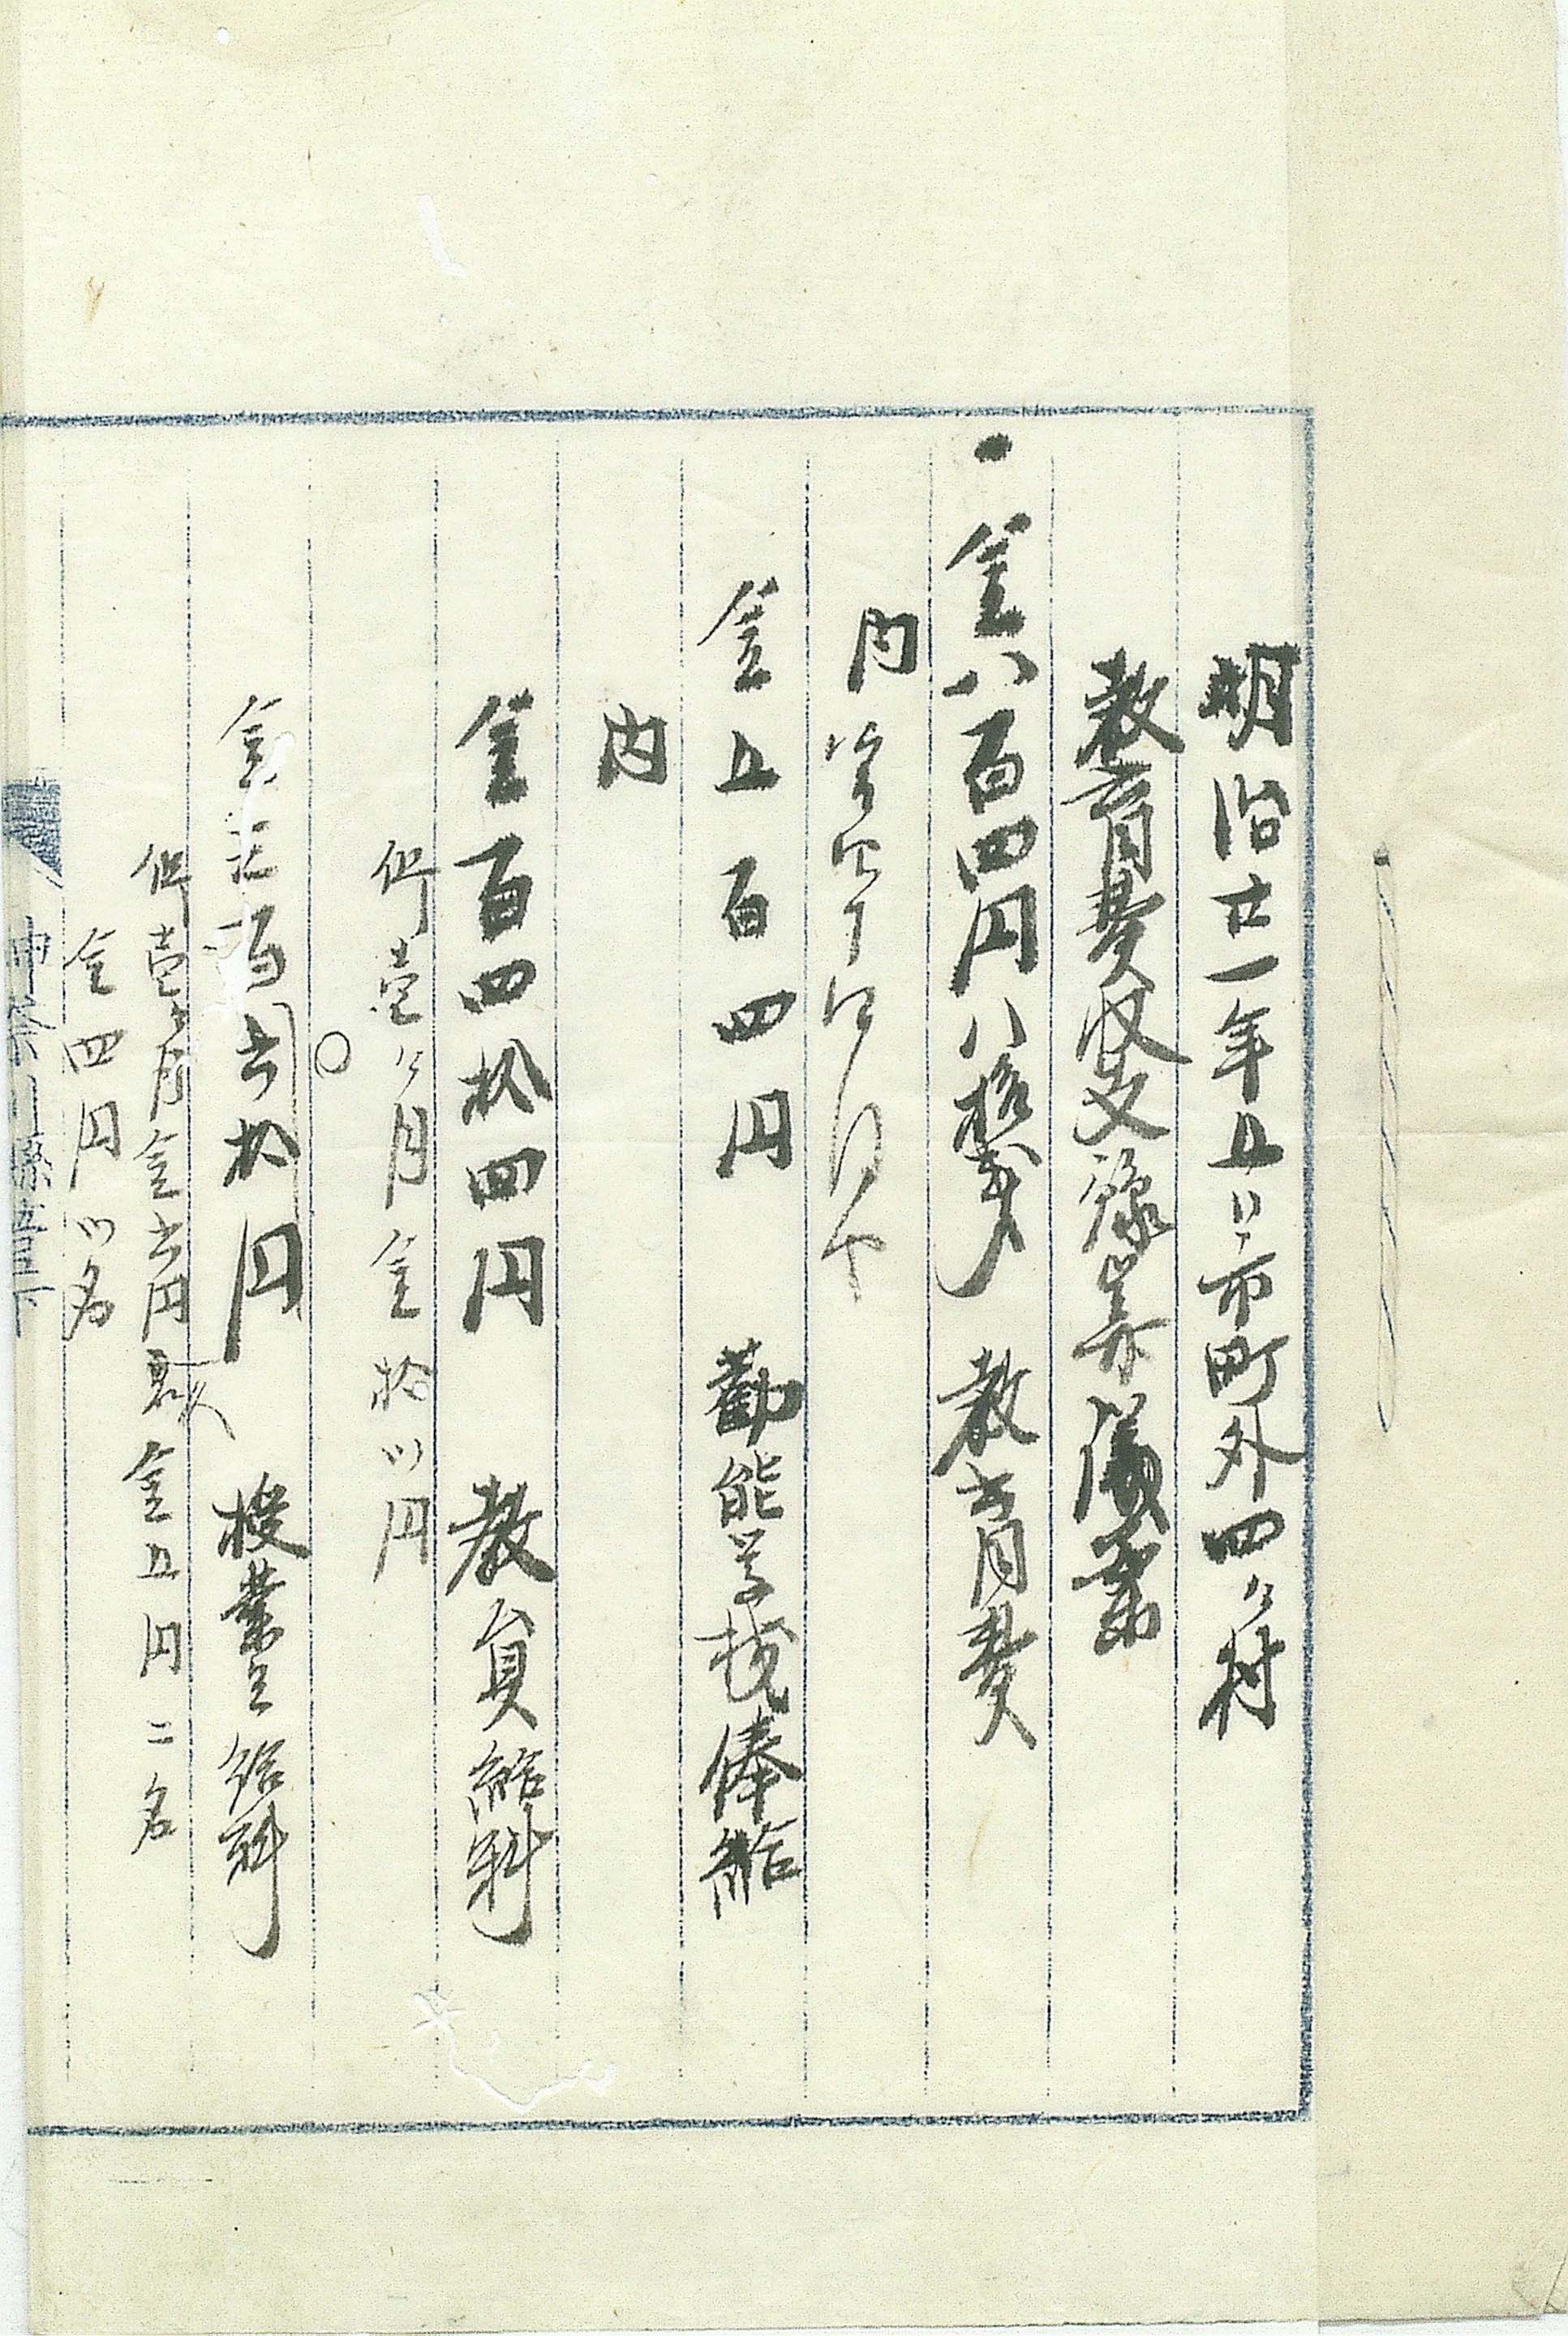 明治廿一年五日市町外四ケ村
教育費収支予算議案
一金八百四円八拾銭 教育費
内
金五百四円 勧能学校俸給
内
金百四拾四円 教員給料
但壱ケ月金拾弐円
金三百六拾円 授業生給料
但壱ケ月金六円 金五円二名
金四円 名
神奈川縣